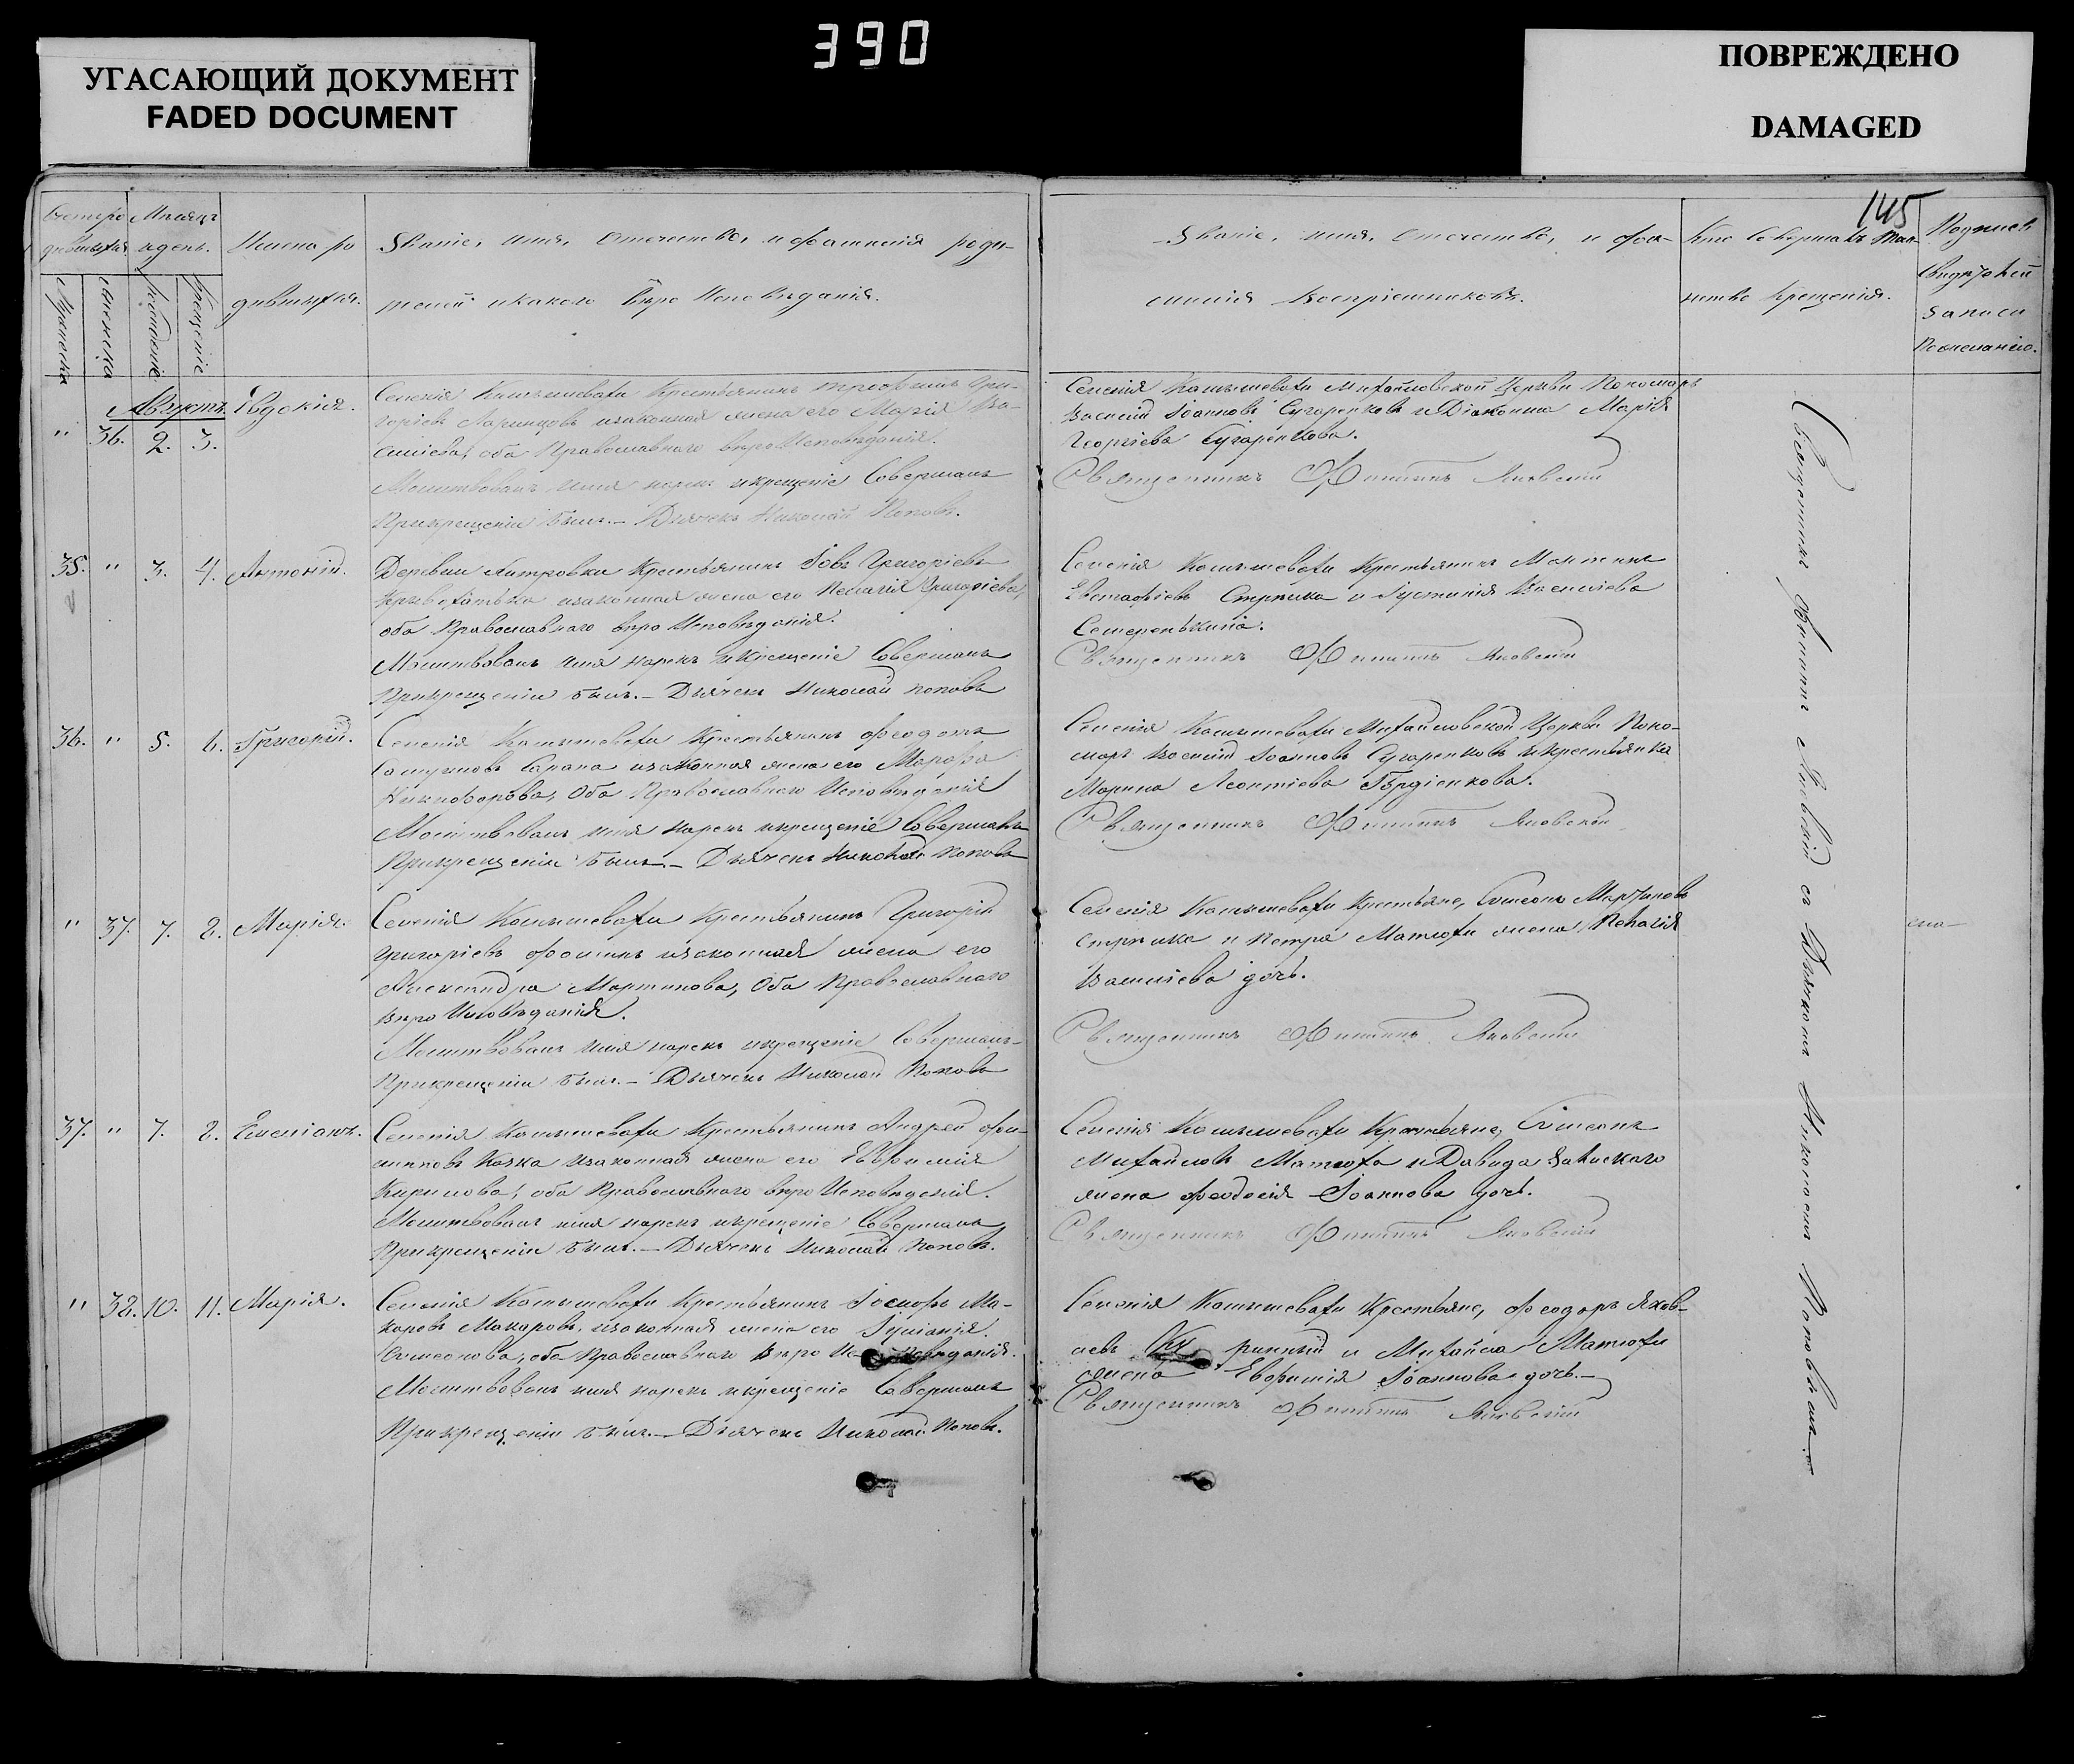 390
УГАСАЮЩИЙ ДОКУМЕНТ
FADED DOCUMENT
ПОВРЕЖДЕНО
DAMAGED
145
Имена ро
дившихся.
Званіе, имя, отечество, и фамилія роди-
телей и какого вѣро исповѣданія.
Мужеска
женска
рожденіе
крещеніе
Званіе, имя, отечество, и фа-
милія воспріемниковъ.
Кто совершалъ таин-
ство крещенія.
Подпись
свидѣтелей
записи
по желанію.
Августъ
" 36. 2. 3. Евдокія.
Селенія Камышевахи крестьянинъ Трофимъ Гри-
горіевъ Ларинцовъ и законная жена его Марія Ва-
силіева, оба Православнаго вѣро Исповѣданія.
Молитвовалъ имя нарекъ и крещеніе совершалъ
При крещеніи былъ.- Дьячекъ Николай Поповъ.
Селенія Камышевахи Михайловской Церкви Пономарь
Василій Іоанновъ Сухаренковъ и Діаконша Марія
Георгіева Сухаренкова.
Священникъ Филиппъ Яновскій
35. " 3. 4. Антоній.
Деревни Дмитровки крестьянинъ Іовъ Григоріевъ
и законная жена его Пелагія Григоріева,
оба Православнаго вѣро Исповѣданія.
Молитвовалъ имя нарекъ и крещеніе совершалъ
При крещеніи былъ.- Дьячекъ Николай Поповъ
Селенія Камышевахи крестьянинъ Мартинъ
Евстафіевъ Стрижка и Іустинія Василіева
Священникъ Филиппъ Яновскій
36. " 5. 6. Григорій.
Селенія Камышевахи крестьянинъ Феодотъ
Сарана и законная жена его Марфа
Никифорова, оба Православнаго Исповѣданія
Молитвовалъ имя нарекъ и крещеніе совершалъ
При крещеніи былъ.- Дьячекъ Николай Поповъ
Селенія Камышевахи Михайловской Церкви Поно-
марь Василій Іоанновъ Сухаренковъ и крестьянка
Марина Леонтіева Гордіенкова.
Священникъ Филиппъ Яновскій
" 37. 7. 8. Марія.
Селенія Камышевахи крестьянинъ Григорій
Григоріевъ Фоминъ и законная жена его
Александра Мартинова, оба Православнаго
вѣро Исповѣданія.
Молитвовалъ имя нарекъ и крещеніе совершалъ
При крещеніи былъ.- Дьячекъ Николай Поповъ
Селенія Камышевахи крестьяне, Симеонъ Мартиновъ
Стрижка и Петра Матюхи жена Пелагія
Василіева дочь.
Священникъ Филиппъ Яновскій
37. " 7. 8. Емеліанъ.
Селенія Камышевахи крестьянинъ Андрей Фи-
липповъ Качка и законная жена его Евфимія
Кирилова, оба Православнаго вѣро Исповѣданія.
Молитвовалъ имя нарекъ и крещеніе совершалъ
При крещеніи былъ.- Дьячекъ Николай Поповъ.
Селенія Камышевахи крестьяне, Симеонъ
Михайловъ Матюха и Давида Заласкаго
жена Феодосія Іоаннова дочь.
Священникъ Филиппъ Яновскій
" 38. 10. 11. Марія.
Селенія Камышевахи крестьянинъ Іосифъ Ма-
каровъ Макаровъ, и законная жена его Іуліанія
Симеонова, оба Православнаго вѣро Исповѣданія.
Молитвовалъ имя нарекъ и крещеніе совершалъ
При крещеніи былъ.- Дьячекъ Николай Поповъ.
Селенія Камышевахи крестьяне, Феодоръ Яков-
левъ и Михайла Матюхи
жена Евфимія Іоаннова дочь.-
Священникъ Филиппъ Яновскій
Священникъ Филиппъ Яновскій съ Дьячкомъ Николаемъ Поповымъ